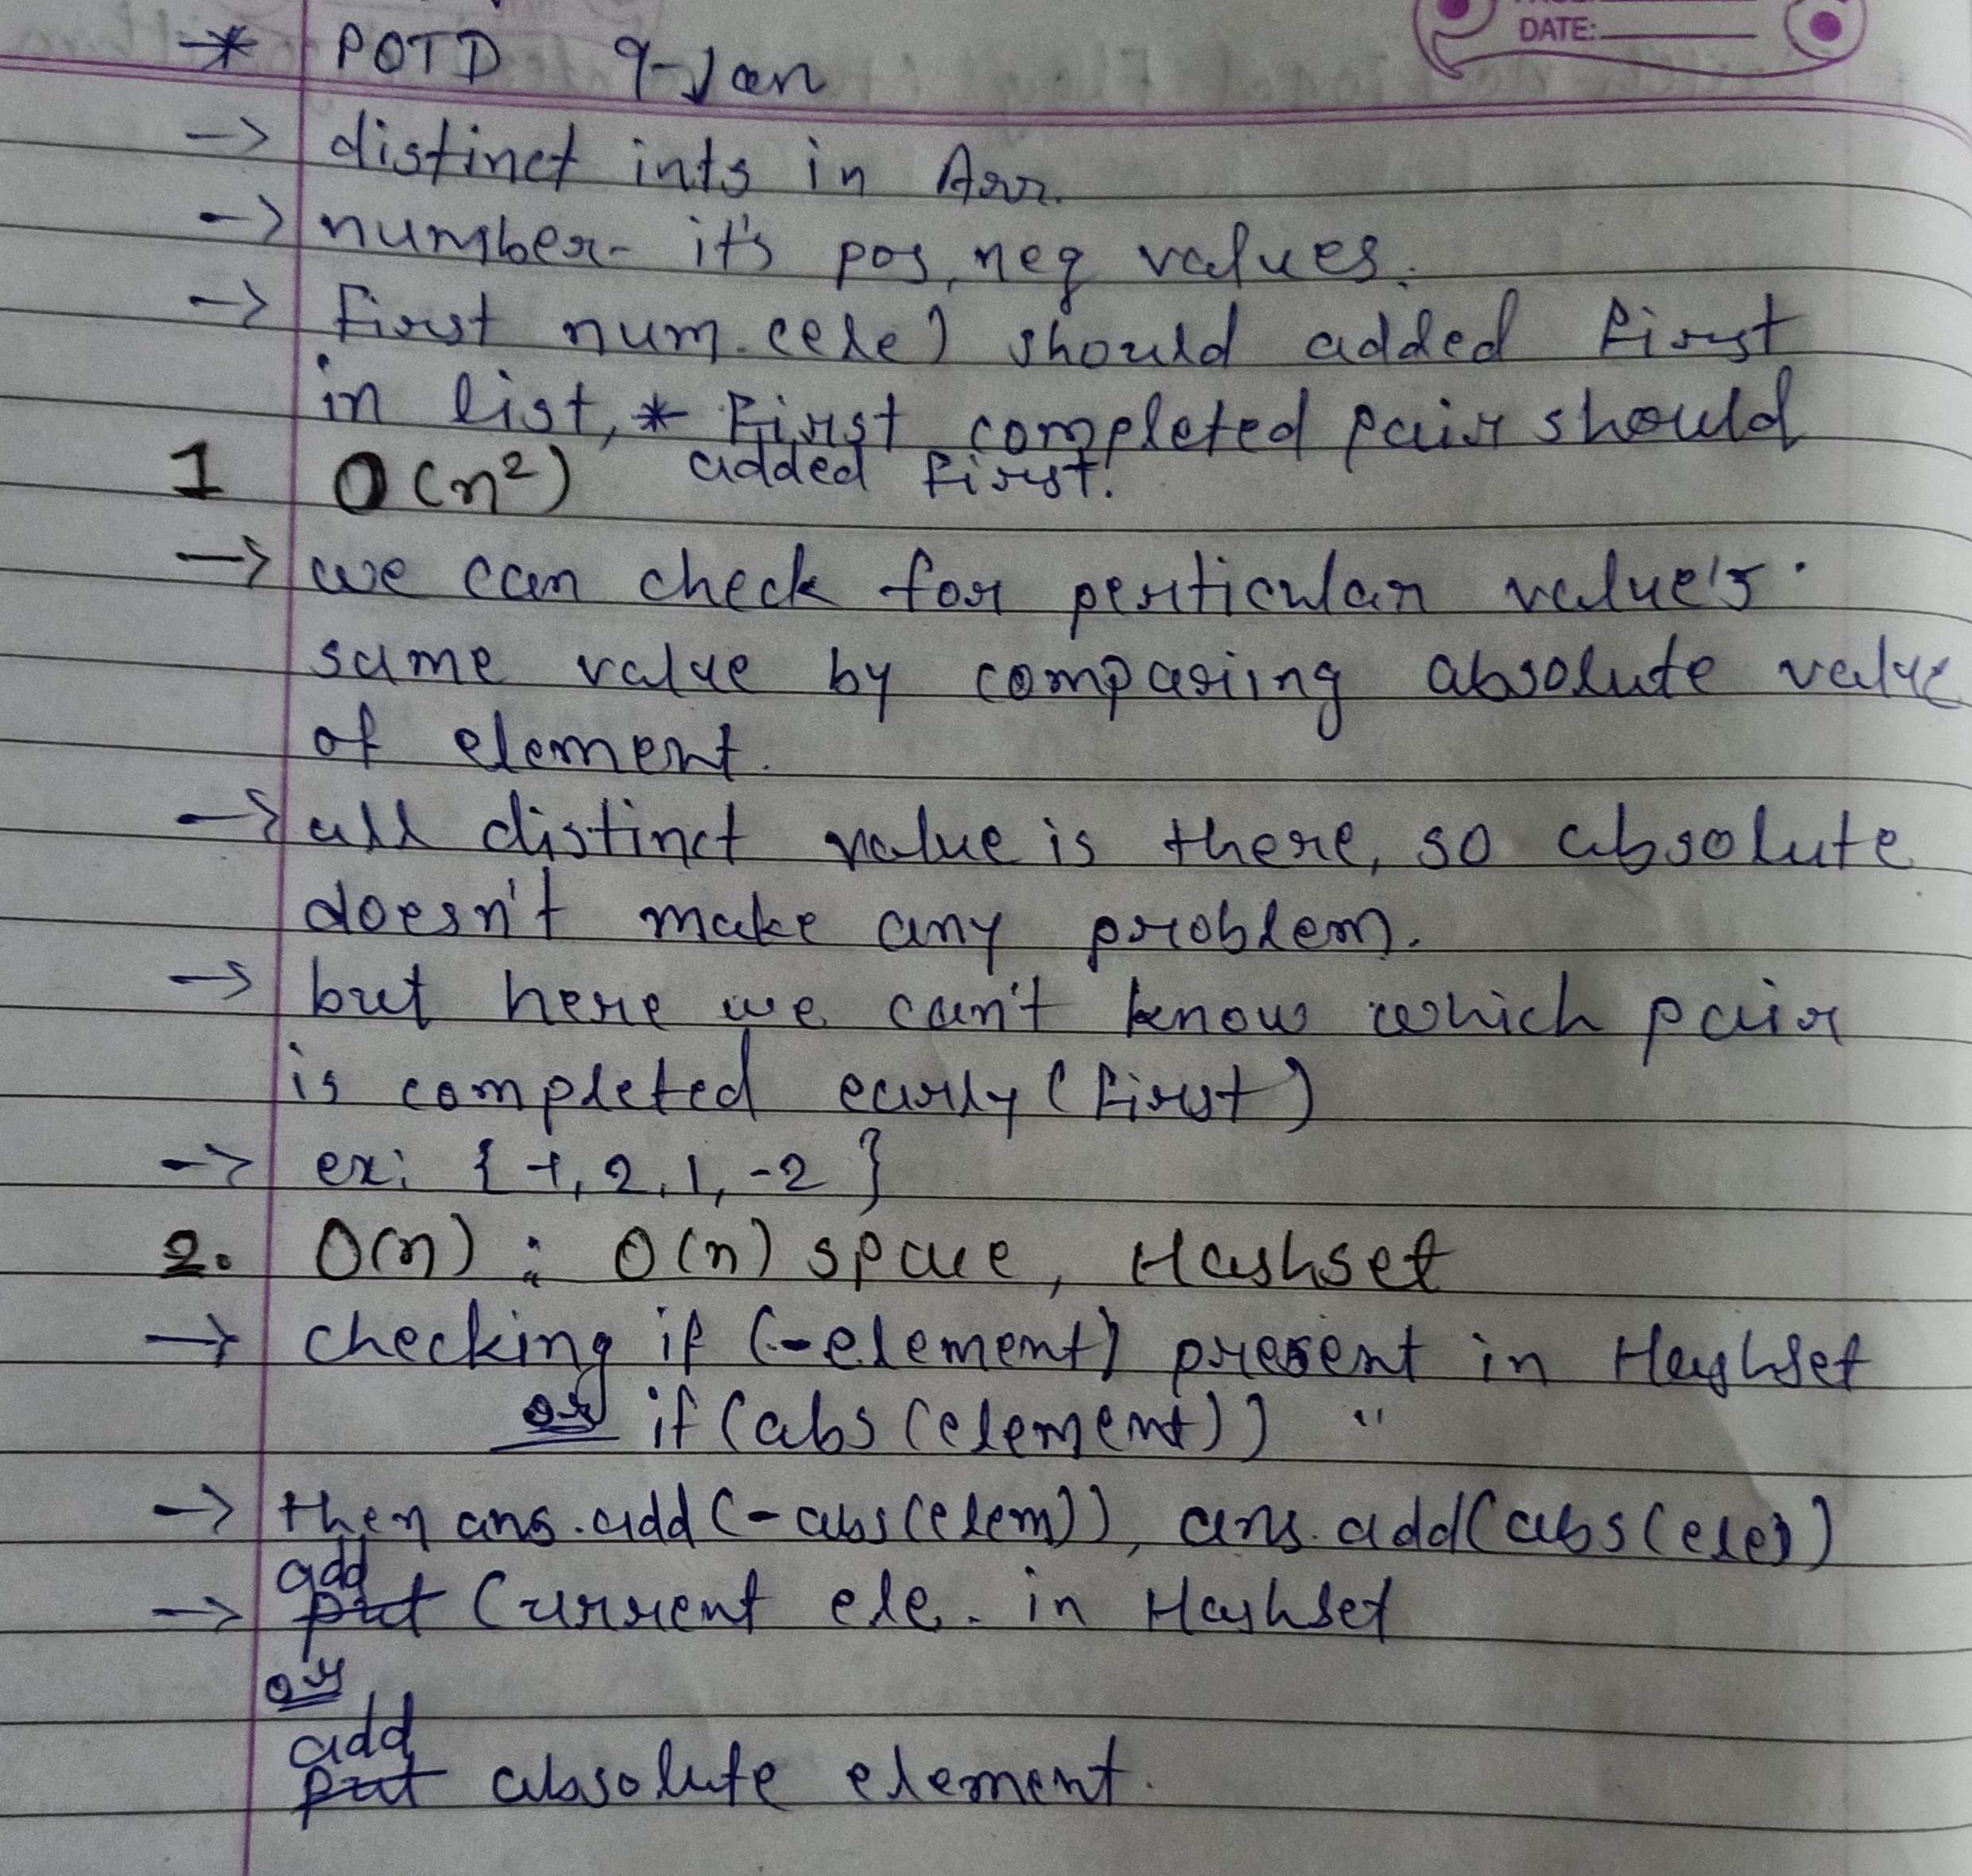 DATE:
* POTD 9-Jan
-> distinct ints in Arr.
-> number- it's pos, neg values.
-> First num.(ele) should added first
in list, * First completed pair should
added first.
1 O(n²)
-> we can check for perticular value's
same value by comparing absolute value
of element.
-> all distinct value is there, so absolute
doesn't make any problem.
-> but here we can't know which pair
is completed early (first)
-> ex: { -1, 2, 1, -2 }
2. O(n) : O(n) space, Hashset
-> checking if (-element) present in Hashset
or if (abs (element)) "
-> then ans.add (-abs(elem)), ans.add(abs(ele))
add
-> put Current ele. in Hashset
or
add
put absolute element.